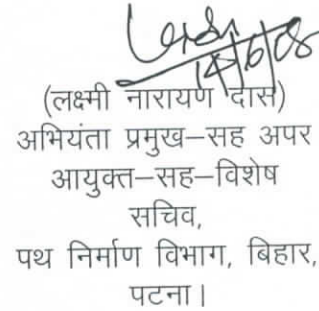 14/6/08
(लक्ष्मी नारायण दास)
अभियंता प्रमुख–सह अपर
आयुक्त–सह–विशेष
सचिव,
पथ निर्माण विभाग, बिहार,
पटना।